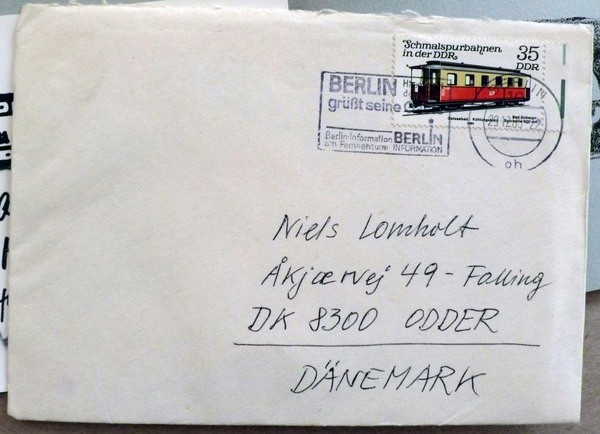 Schmalspurbahnen
in der DDR
35
DDR
BERLIN
grüßt seine
Berlin-Information
am Fernsehturm
BERLIN
INFORMATION
oh
Niels Lomholt
Åkjærvej 49 - Falling
DK 8300 ODDER
DÄNEMARK